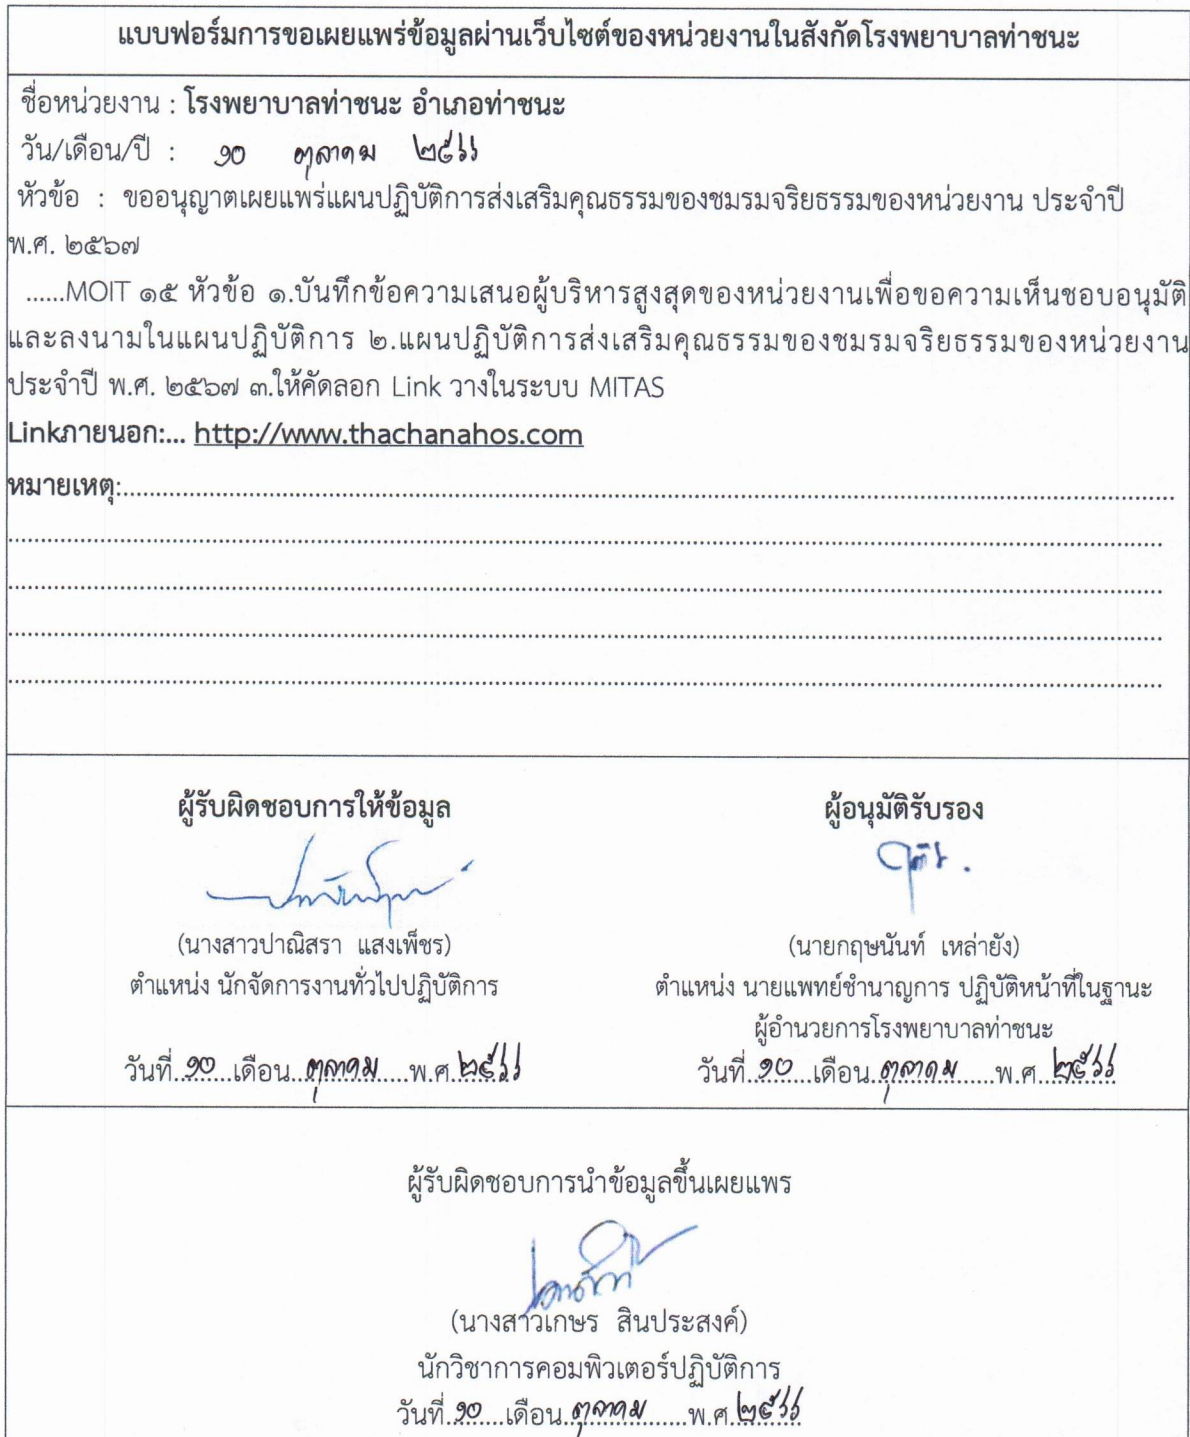 แบบฟอร์มการขอเผยแพร่ข้อมูลผ่านเว็บไซต์ของหน่วยงานในสังกัดโรงพยาบาลท่าชนะ
ชื่อหน่วยงาน : โรงพยาบาลท่าชนะ อำเภอท่าชนะ
วัน/เดือน/ปี : ๑๐ ตุลาคม ๒๕๖๖
หัวข้อ : ขออนุญาตเผยแพร่แผนปฏิบัติการส่งเสริมคุณธรรมของชมรมจริยธรรมของหน่วยงาน ประจำปี
พ.ศ. ๒๕๖๗
......MOIT ๑๕ หัวข้อ ๑.บันทึกข้อความเสนอผู้บริหารสูงสุดของหน่วยงานเพื่อขอความเห็นชอบอนุมัติ
และลงนามในแผนปฏิบัติการ ๒.แผนปฏิบัติการส่งเสริมคุณธรรมของชมรมจริยธรรมของหน่วยงาน
ประจำปี พ.ศ. ๒๕๖๗ ๓.ให้คัดลอก Link วางในระบบ MITAS
Linkภายนอก:... http://www.thachanahos.com
หมายเหตุ:
ผู้รับผิดชอบการให้ข้อมูล ผู้อนุมัติรับรอง
(นางสาวปาณิสรา แสงเพ็ชร) (นายกฤษนันท์ เหล่ายัง)
ตำแหน่ง นักจัดการงานทั่วไปปฏิบัติการ ตำแหน่ง นายแพทย์ชำนาญการ ปฏิบัติหน้าที่ในฐานะ
ผู้อำนวยการโรงพยาบาลท่าชนะ
วันที่ ๑๐ เดือน ตุลาคม พ.ศ. ๒๕๖๖ วันที่ ๑๐ เดือน ตุลาคม พ.ศ. ๒๕๖๖
ผู้รับผิดชอบการนำข้อมูลขึ้นเผยแพร
(นางสาวเกษร สินประสงค์)
นักวิชาการคอมพิวเตอร์ปฏิบัติการ
วันที่ ๑๐ เดือน ตุลาคม พ.ศ. ๒๕๖๖